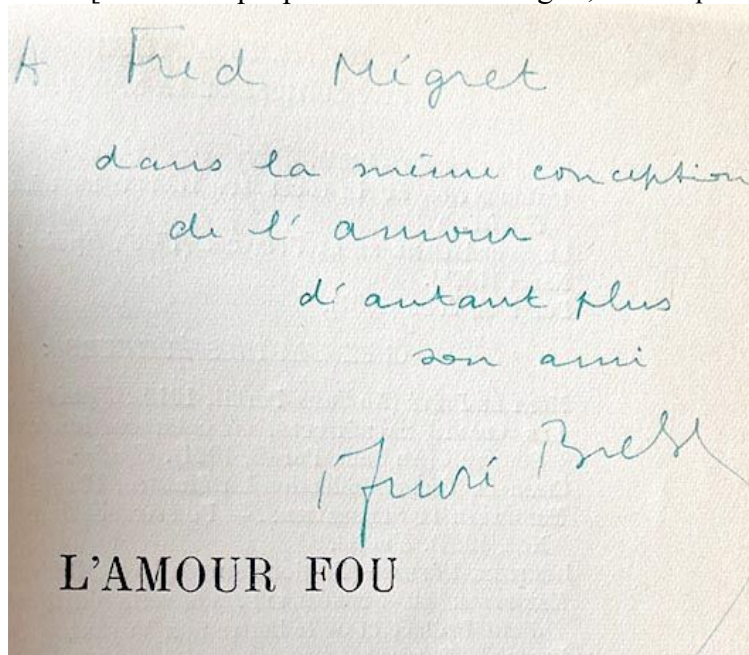 A Fred Mégret
dans la même conception
de l'amour
d'autant plus
son ami
André Breton
L'AMOUR FOU